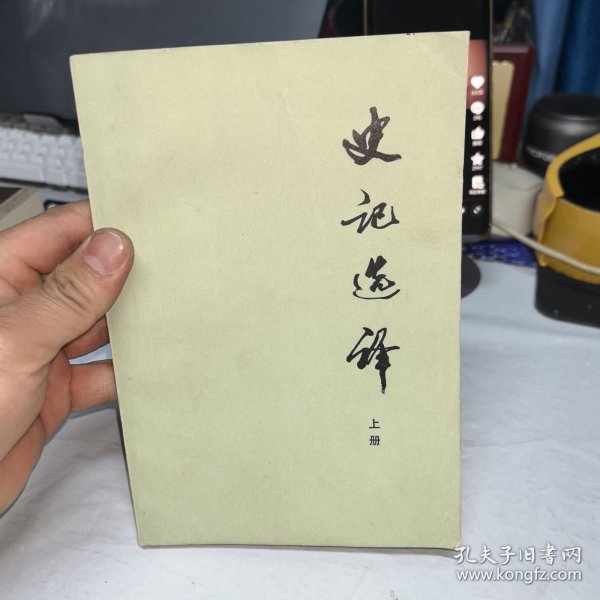 史记选译
上册
孔夫子旧书网
www.kongfz.com